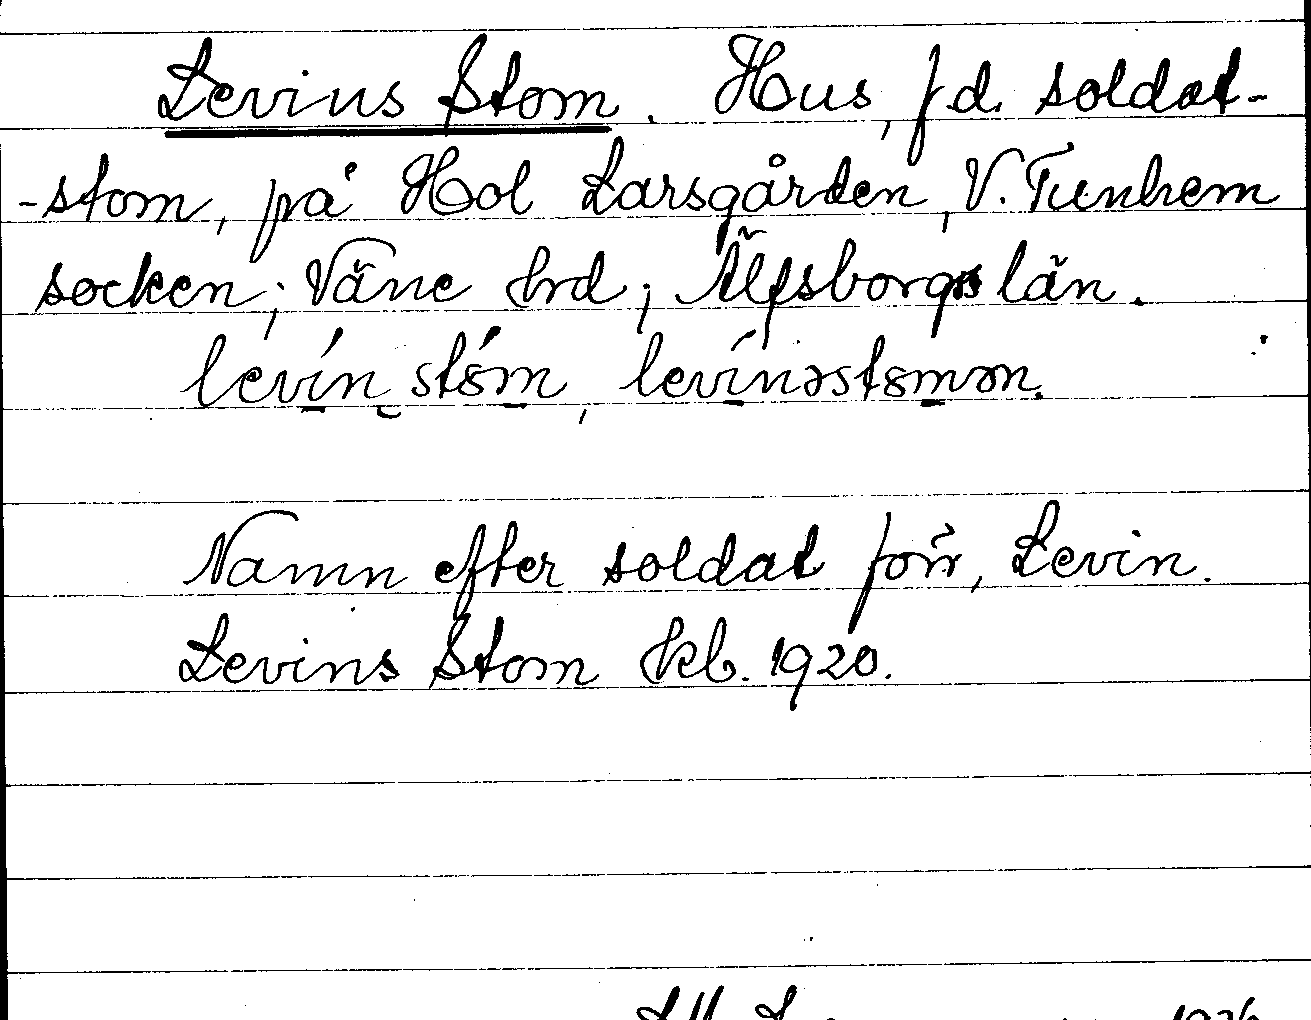 Levins Stom. Hus, f.d. soldat-
-stom, på Hol Larsgården, V. Tunhem
socken; Väne hrd; Älfsborgs län.
levin stom, levinəstomən.
Namn efter soldat förr, Levin.
Levins Stom kb. 1920.